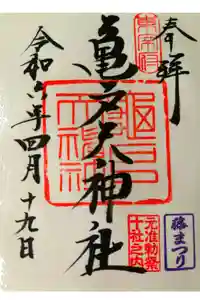 奉拝
東宰府
亀戸天神社
令和六年四月十九日
元准勅祭
十社之内
藤まつり